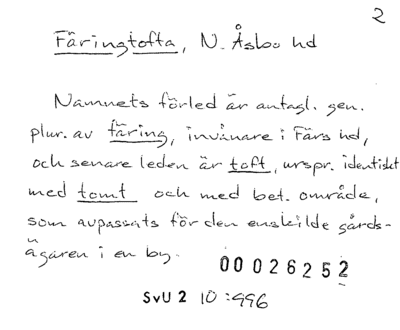 2
Färingtofta, N. Åsbo hd
Namnets förled är antagl. gen.
plur. av färing, invånare i Färs hd,
och senare leden är toft, urspr. identiskt
med tomt och med bet. område,
som avpassats för den enskilde gårds-
ägaren i en by.
00026252
SvU 2 10:996